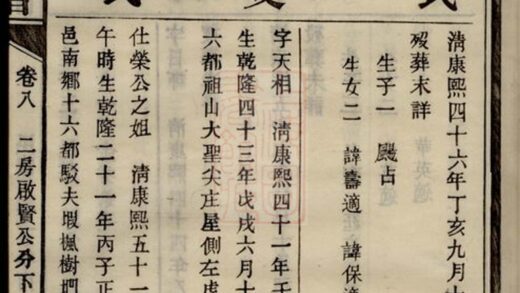 清康熙四十六年丁亥九月
歿葬未詳
生子一 颺占
生女二 諱壽適 諱保適
字天相 清康熙四十一年壬
生乾隆四十三年戊戌六月十
六都祖山大聖尖庄屋側左
仕榮公之姐 清康熙五十一
午時生乾隆二十一年丙子正
邑南鄉十六都駁夫塅楓樹
卷八 二房啟賢公分下